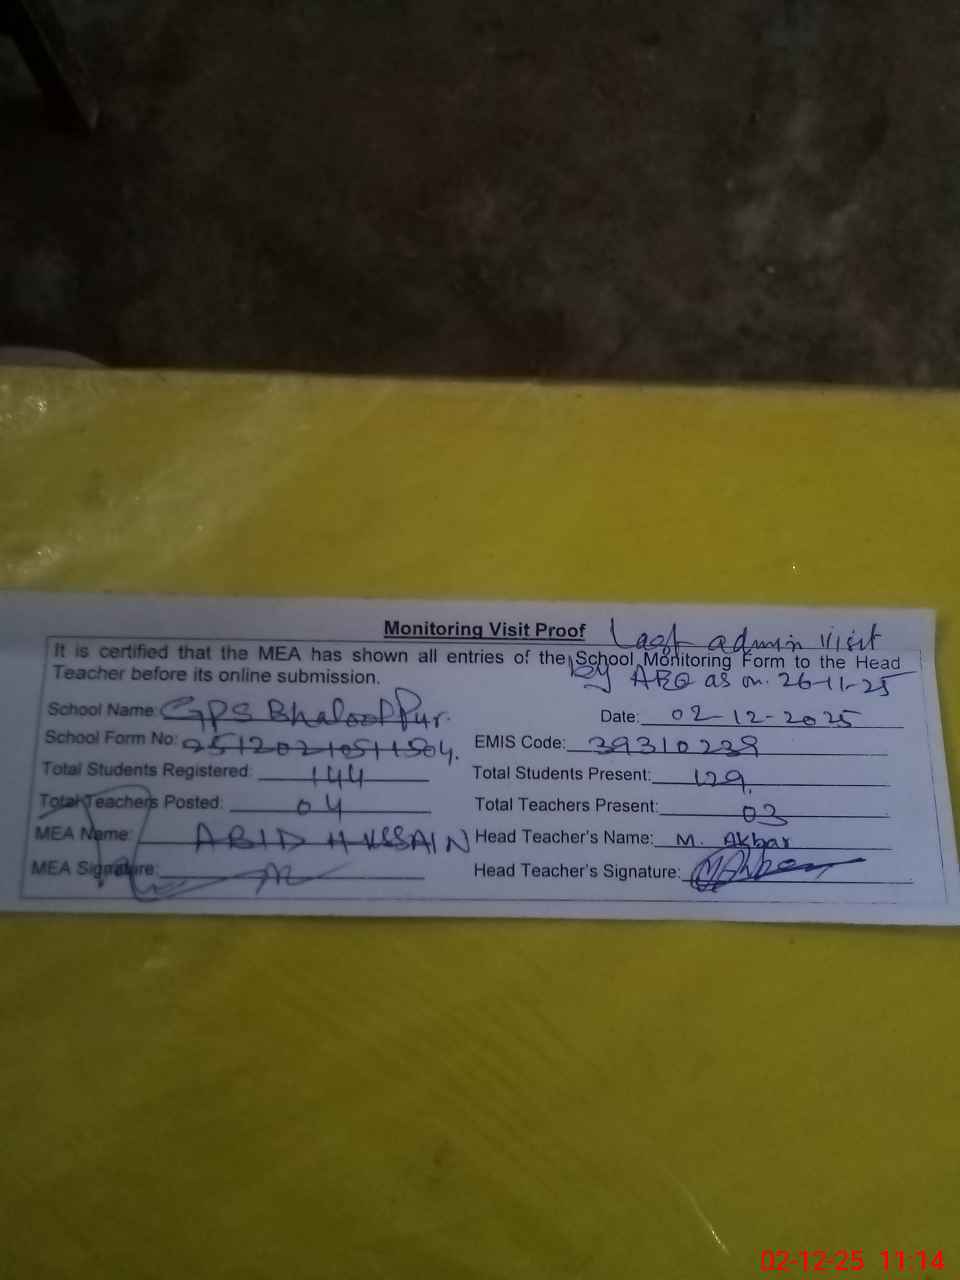 Monitoring Visit Proof Last admin visit
It is certified that the MEA has shown all entries of the School Monitoring Form to the Head
Teacher before its online submission. by as on. 26-11-25
School Name: GPS Pur. Date: 02-12-2025
School Form No: EMIS Code: 39310239
Total Students Registered: 144 Total Students Present: 129
Total Teachers Posted: 04 Total Teachers Present: 03
MEA Name: ABID HUSSAIN Head Teacher's Name: M. Akbar
MEA Signature: Head Teacher's Signature:
02-12-25 11:14